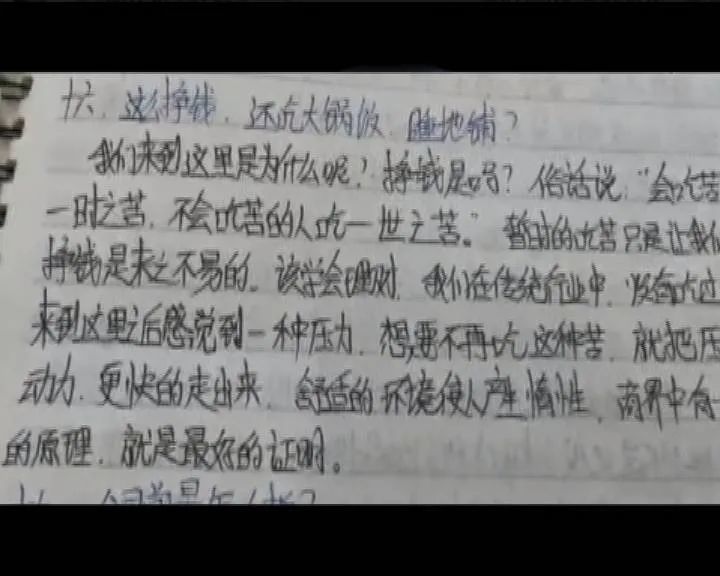 十六、这么挣钱，还吃大锅饭、睡地铺？
我们来到这里是为什么呢？挣钱是吗？俗话说："会吃苦
一时之苦，不会吃苦的人吃一世之苦。"暂时的吃苦只是让我们
挣钱是来之不易的。该学会理财，我们在传统行业中，没有吃过
来到这里之后感觉到一种压力，想要不再吃这种苦，就把压
动力，更快的走出来，舒适的环境使人产生惰性，商界中有一
的原理，就是最好的证明。